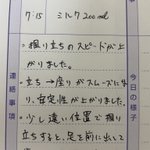 7:15 ミルク200ml
今日の様子
連絡事項
・掴り立ちのスピードが上
がりました。
・立ち→座りがスムーズにな
り、安定性が上がりました。
・少し遠い位置で掴り
立ちすると、足を前に出して